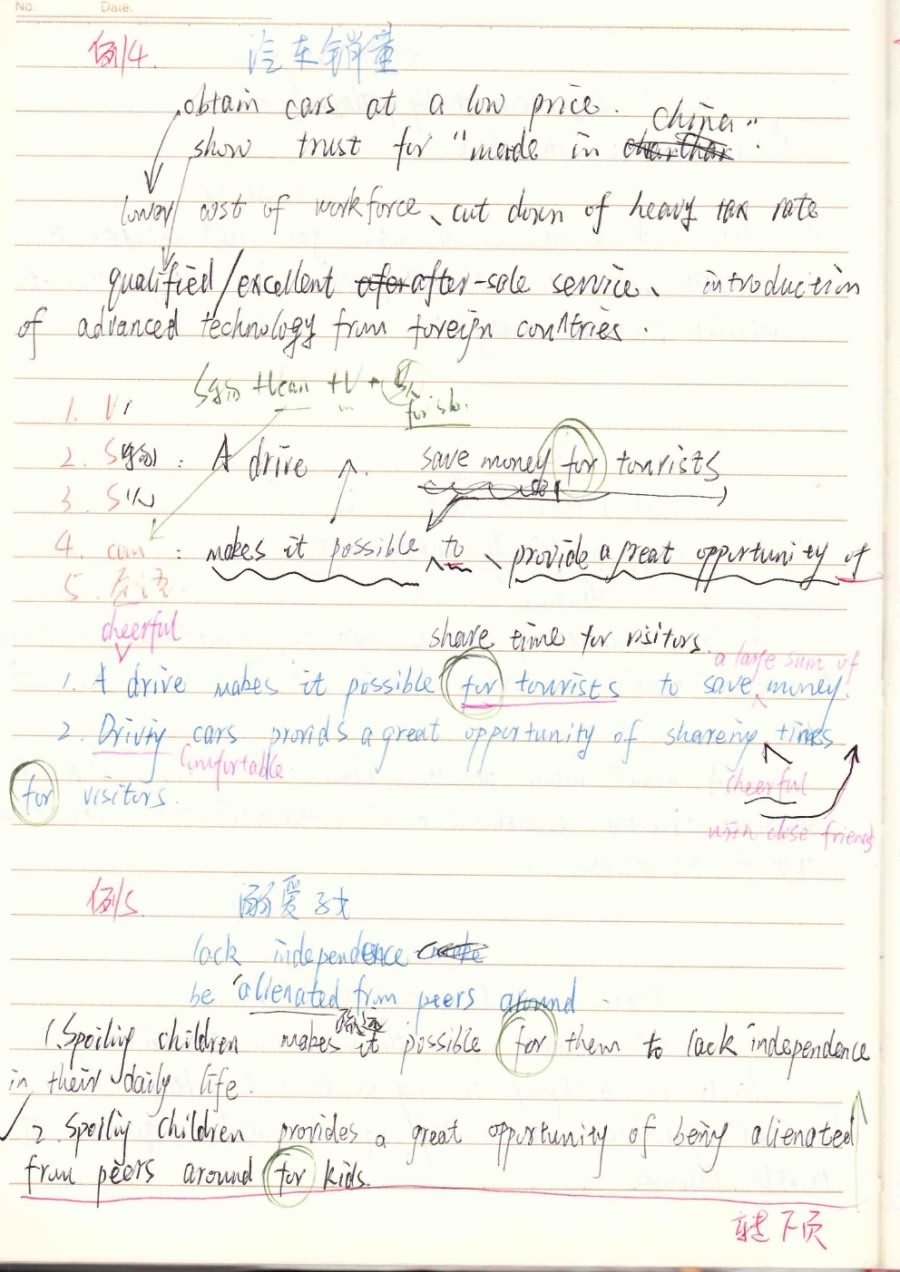 No. Date.
例4. 汽车销量
obtain cars at a low price.
China"
show trust for "made in .
lower cost of workforce、cut down of heavy tax rate
qualified/excellent after-sale service、introduction
of advanced technology from foreign countries.
+can +V +
for sb.
1. V
2. S : A drive save money for tourists
3. S
4. can : makes it possible to、provide a great opportunity of
5.
cheerful
share time for visitors.
a large sum of
1. A drive makes it possible for tourists to save money.
2. Drivig cars provids a great opportunity of shareing times
Comfortable
for visitors.
cheerful
with close friends
例5. 溺爱孩
lack independence
be alienated from peers around.
疏远
1. Spoilig children makes it possible for them to lack independence
in their daily life.
2. Spoilig children provides a great opportunity of being alienated
from peers around for kids.
转下页